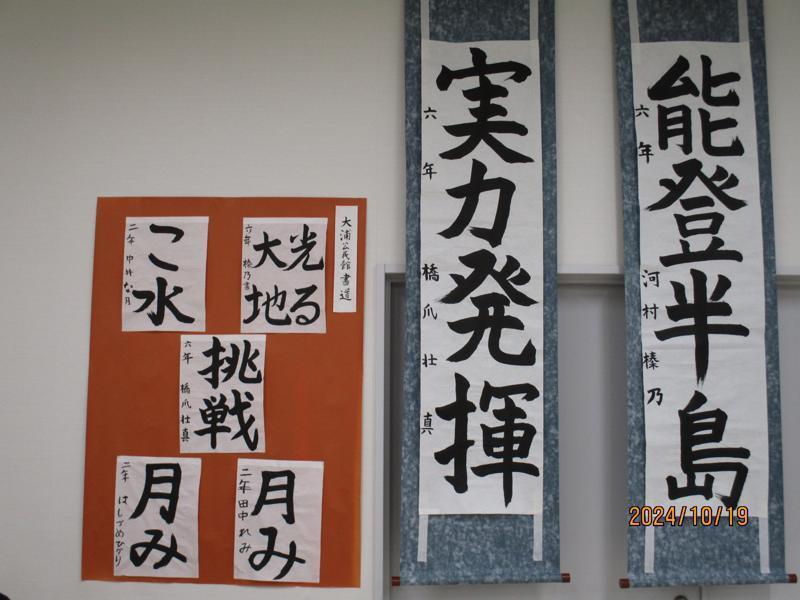 能登半島
六年
河村榛乃
実力発揮
六年
橋爪壮真
大浦公民館書道
光る
大地
六年 榛乃書
こ水
二年
挑戦
六年 橋爪壮真
月み
二年 田中れみ
月み
二年 はしづめひかり
2024/10/19